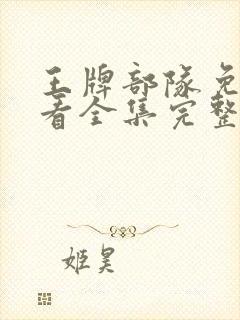 王牌部队免
看全集完整
姬昊